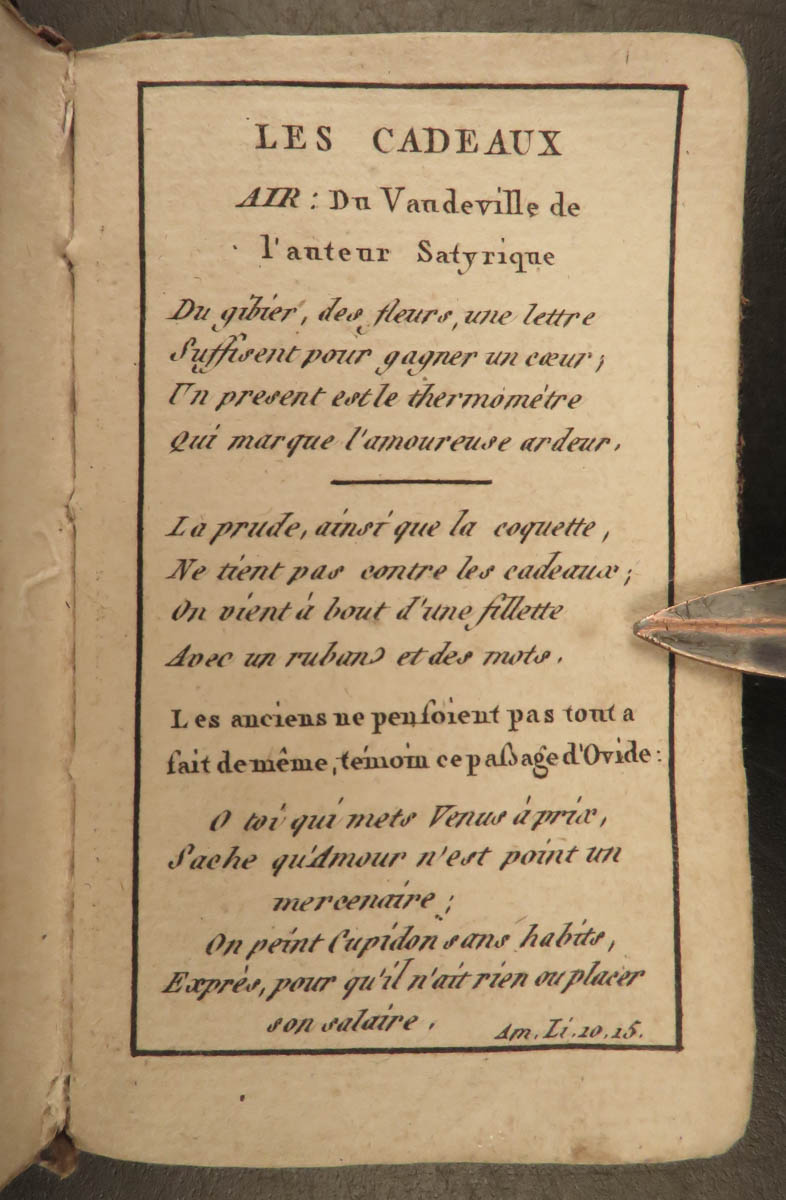 LES CADEAUX
AIR : Du Vaudeville de
l'auteur Satyrique
Du gibier, des fleurs, une lettre
Suffisent pour gagner un cœur ;
Un present est le thermométre
Qui marque l'amoureuse ardeur.
La prude, ainsi que la coquette,
Ne tient pas contre les cadeaux ;
On vient à bout d'une fillette
Avec un ruban et des mots.
Les anciens ne penſoient pas tout a
fait de même, témoin ce paſsage d'Ovide :
O toi qui mets Venus à prix,
Sache qu'Amour n'est point un
mercenaire ;
On peint Cupidon sans habits,
Exprés, pour qu'il n'ait rien ou placer
son salaire.
Am. Li. 10. 15.